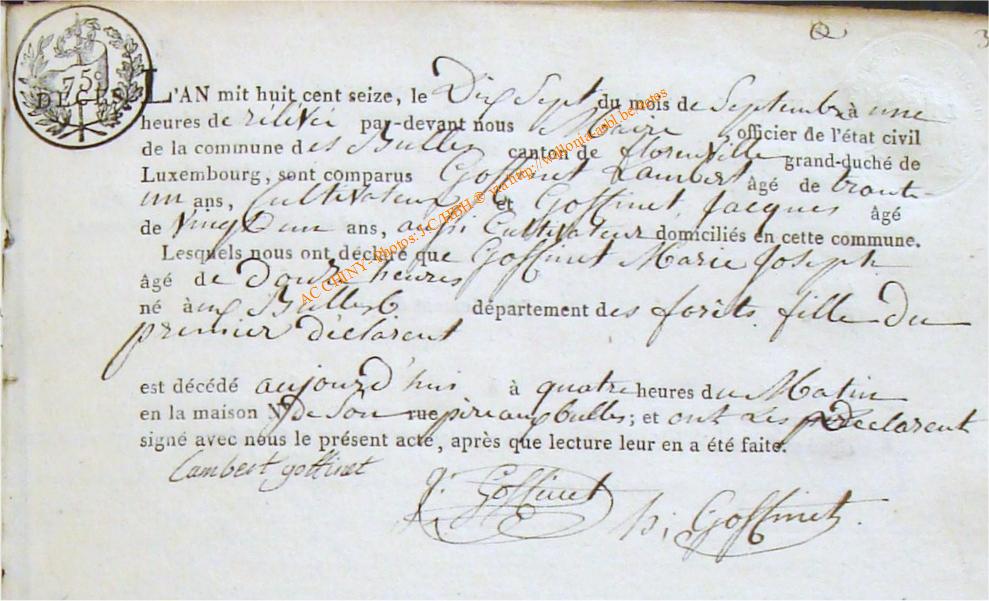 75c
DÉCÈS
3
L'AN mil huit cent seize, le Dix Sept du mois de Septembre à une
heures de rélévée par-devant nous Maire officier de l'état civil
de la commune des Bulles canton de florenville grand-duché de
Luxembourg, sont comparus Goffinet Lambert âgé de trante
un ans, Cultivateur et Goffinet Jacques âgé
de Vingt un ans, aussi Cultivateur domiciliés en cette commune.
Lesquels nous ont déclaré que Goffinet Marie Joseph
âgé de Douze heures
né aux Bulles département des forêts fille Du
premier déclarent
est décédé aujourd'hui à quatre heures du Matin
en la maison N° de Son rue père aux bulles; et ont Les Declarent
signé avec nous le présent acte, après que lecture leur en a été faite.
Lambert goffinet
J. Goffinet
h; Goffinet.
AC CHINY - photos: J.C/HBH © via http://wallonia-asbl.be/notes